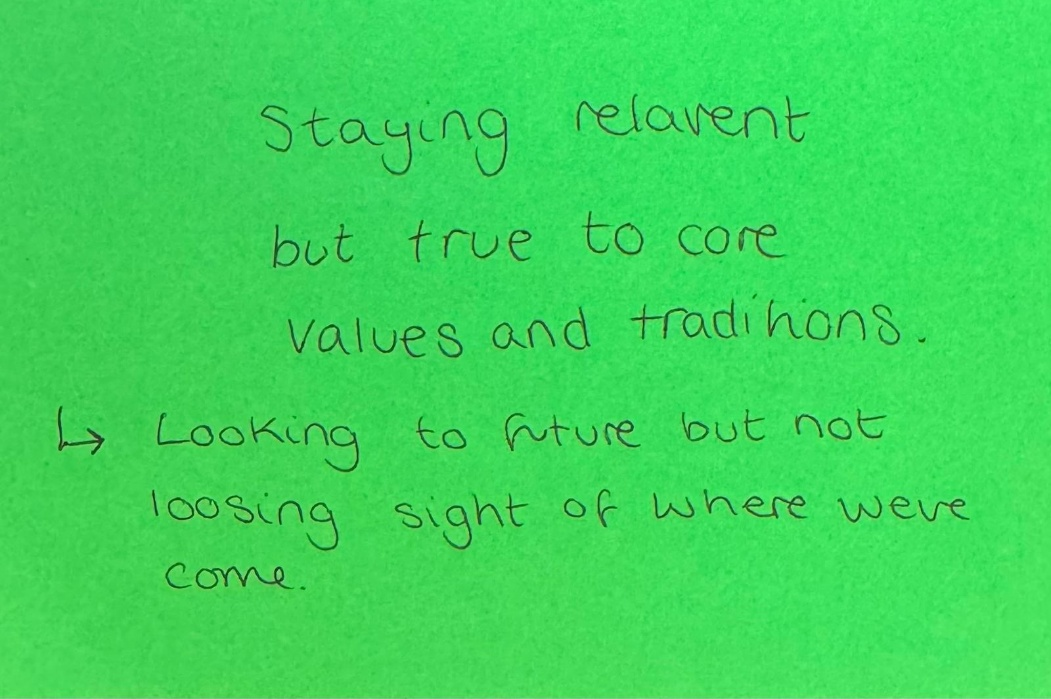 Staying relavent
but true to core
values and traditions.
↳ Looking to future but not
loosing sight of where weve
come.